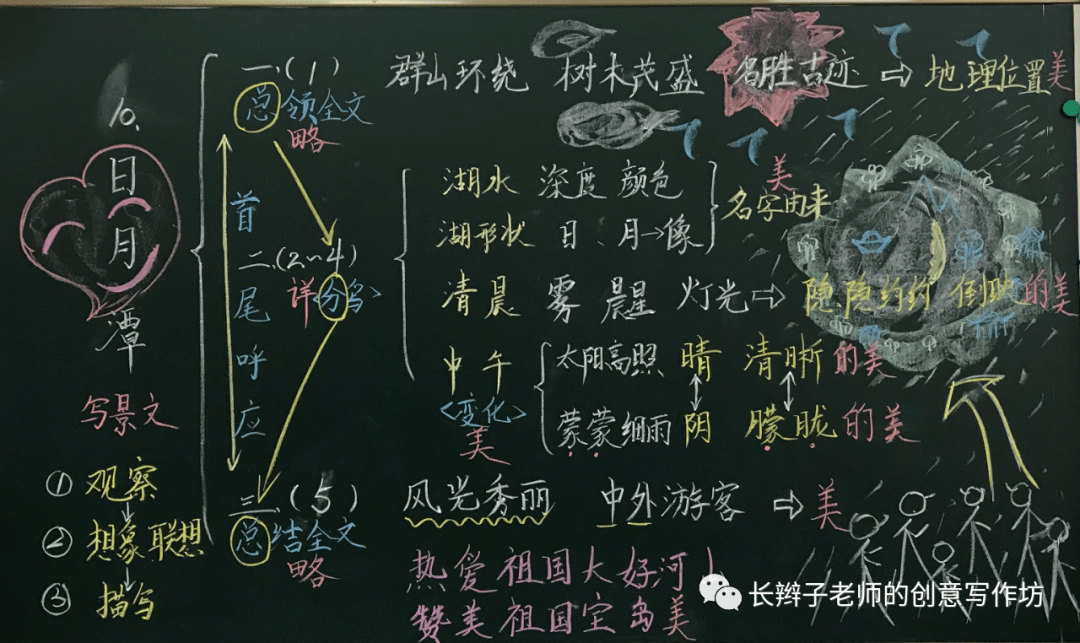 10、日月潭
写景文
① 观察
② 想象联想
③ 描写
一、(1)
总领全文
略
首尾呼应
二、(2~4)
详 分写
三、(5)
总结全文
略
群山环绕 树木茂盛 名胜古迹 ⇨ 地理位置美
湖水 深度 颜色
湖形状 日、月→像
美
名字由来
清晨 雾 晨星 灯光 ⇨ 隐隐约约 倒映的美
中午
<变化>
美
太阳高照 晴 清晰的美
蒙蒙细雨 阴 朦胧的美
风光秀丽 中外游客 ⇨ 美
热爱祖国大好河山
赞美祖国宝岛美
长辫子老师的创意写作坊